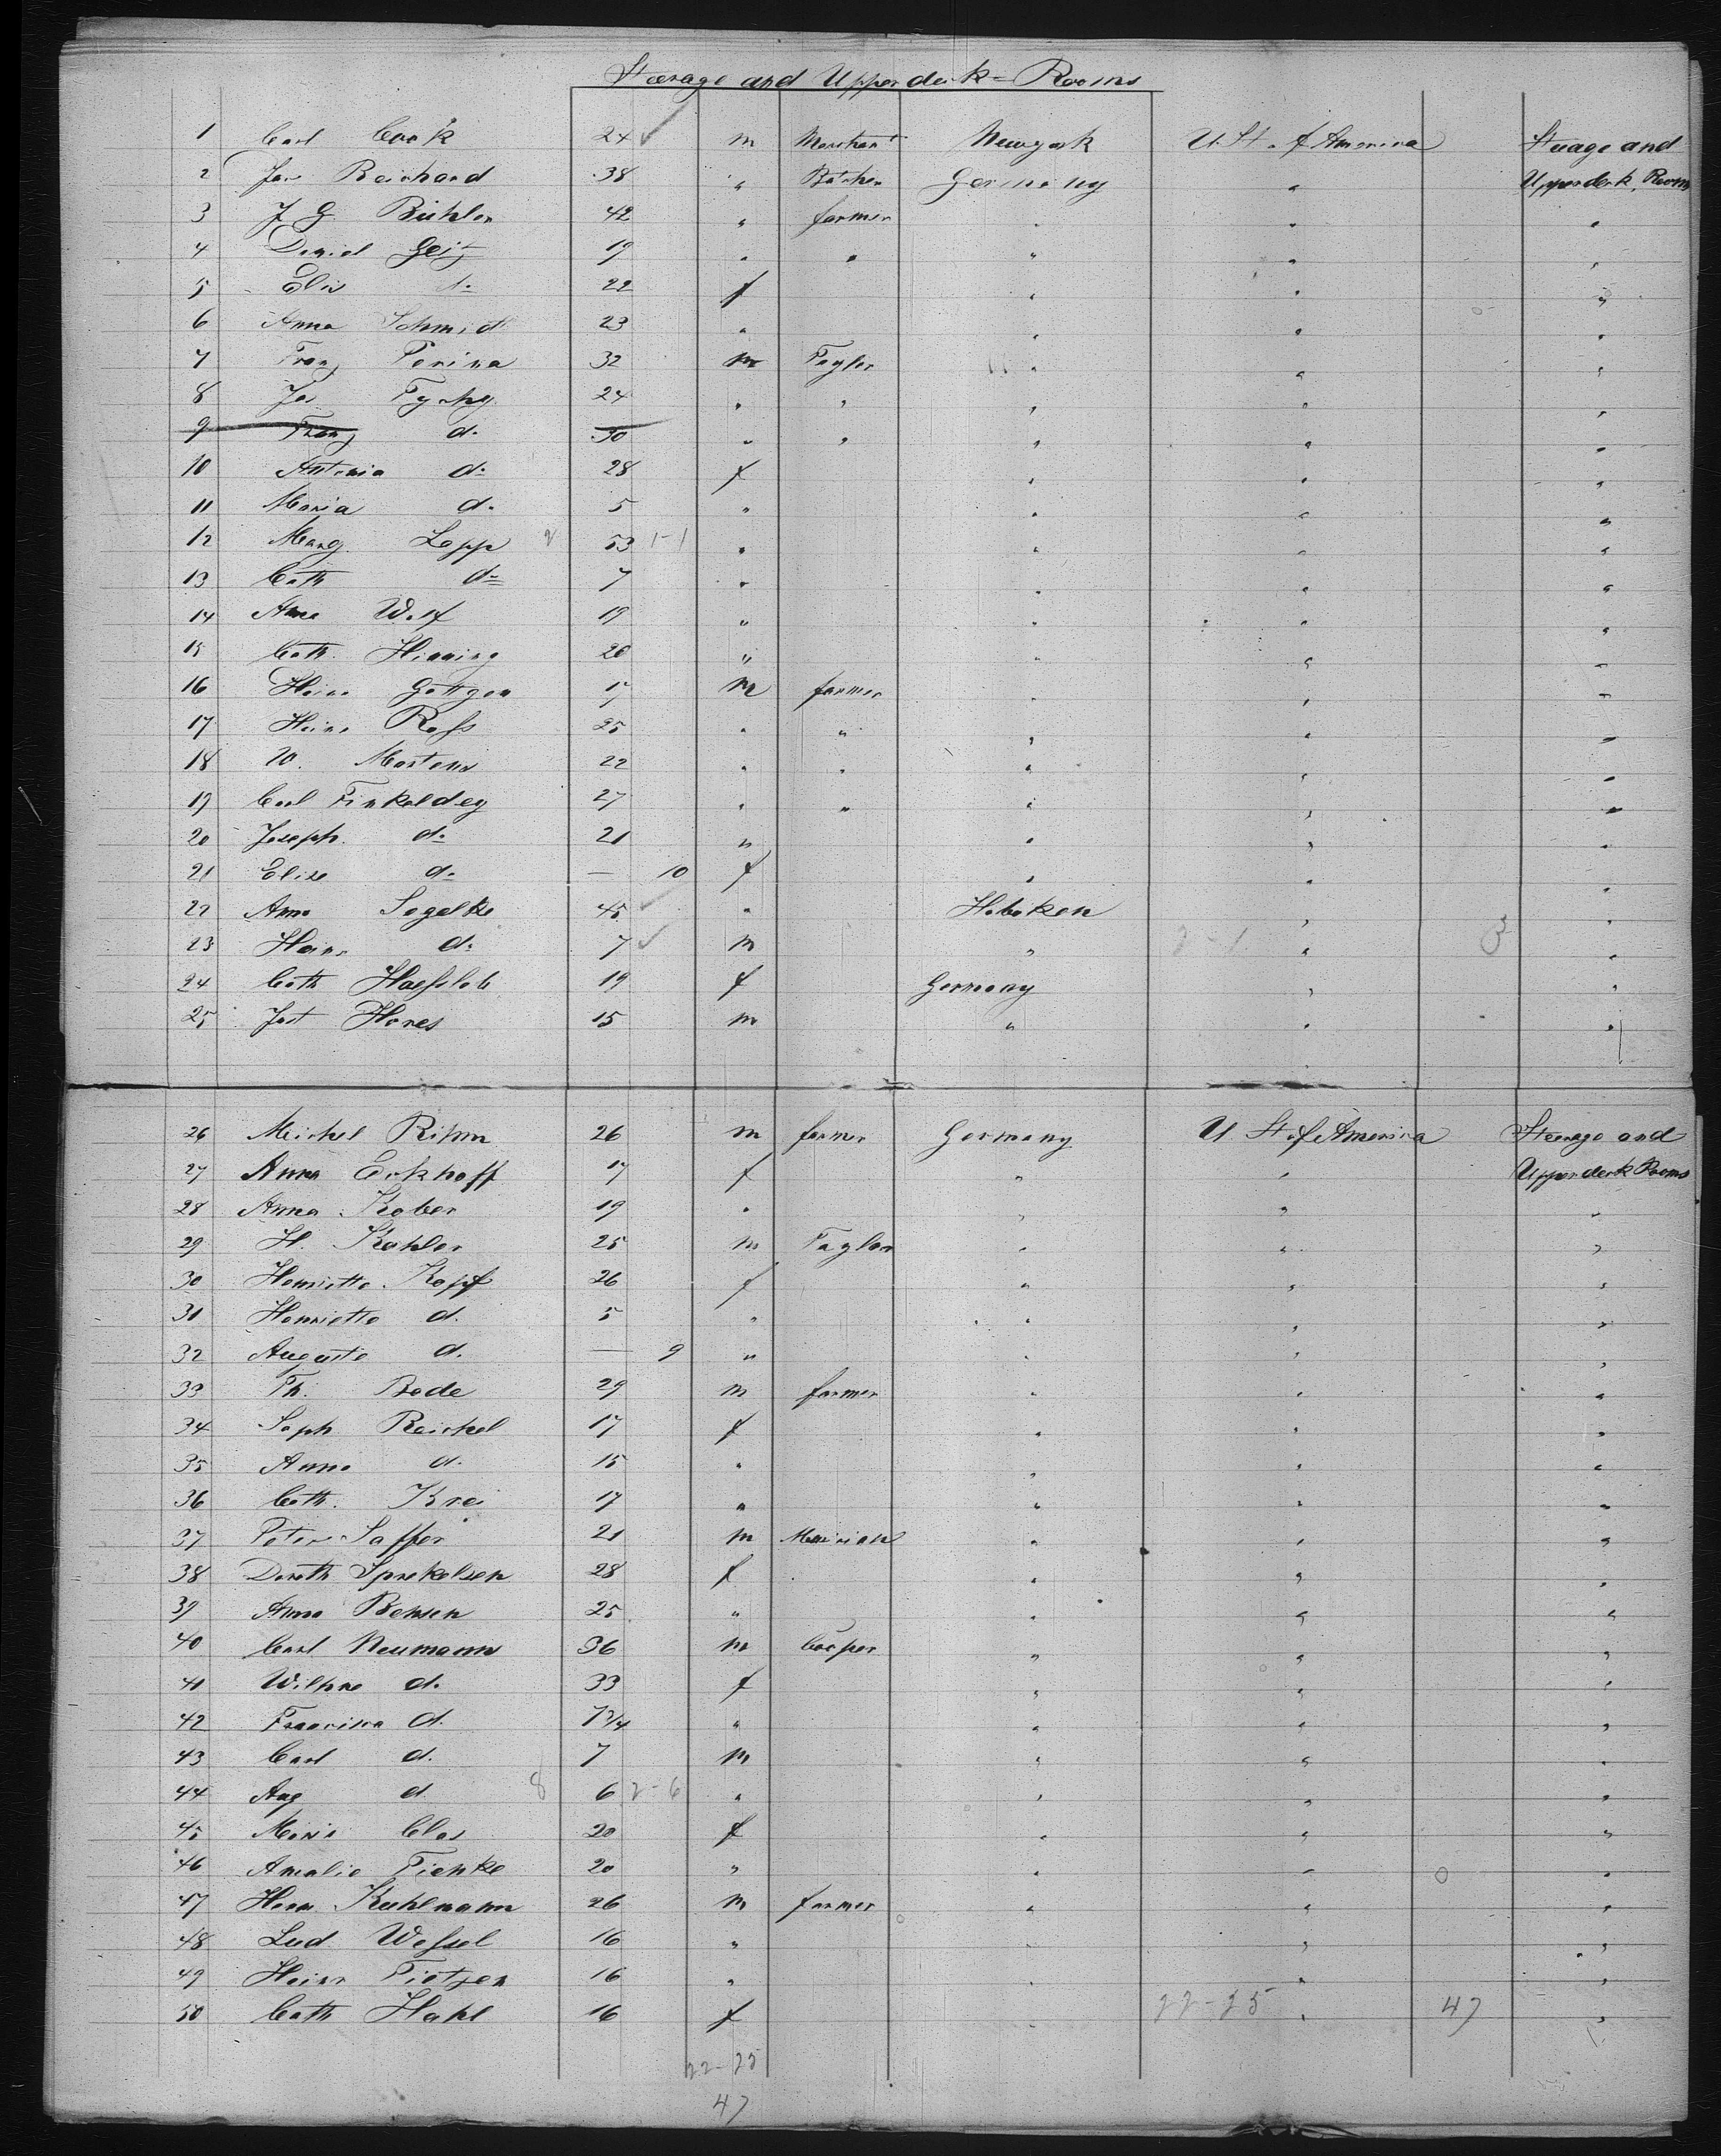 Steerage and Upperdeck=Rooms
1 Carl Cook 24 ✓ m Merchant Newyork U. St. of America Steerage and
2 Jac Reichard 38 " Butcher Germany " Upperdeck Rooms
3 J G. Bühler 42 " farmer " " "
4 Daniel Geiz 19 " " " " "
5 Elis do 22 f " " "
6 Anna Schmidt 23 " " " "
7 Franz Perina 32 m Taylor " " "
8 Jos Tychy 24 " " " " "
9 Franz do 30 " " " " "
10 Antonia do 28 f " " "
11 Maria do 5 " " " "
12 Marg. Lapp 2 53 1-1 " " " "
13 Cath do 7 " " " "
14 Anna Wolf 19 " " " "
15 Cath. Hinning 20 " " " "
16 Heinr Göttgen 17 m farmer " " "
17 Heinr Roß 25 " " " " "
18 W. Martens 22 " " " " "
19 Carl Finkeldey 27 " " " " "
20 Joseph do 21 " " " "
21 Elise do — 10 f " " "
22 Anna Segelke 45 ✓ " Hoboken " "
23 Heinr do 7 ✓ m " 2-1 " 3 "
24 Cath 19 f Germany " "
25 Jost Hones 15 m " " "
26 Meichel Rihm 26 m farmer Germany U. St. of America Steerage and
27 Anna Eckhoff 17 f " " Upperdeck Rooms
28 Anna Kober 19 " " " "
29 H. Kohler 25 m Taylor " " "
30 Henriette Kopf 26 f " " "
31 Henriette do 5 " " " "
32 Auguste do — 9 " " " "
33 Th. Bode 29 m farmer " " "
34 Soph Reichel 17 f " " "
35 Anna do 15 " " " "
36 Cath. Krei 17 " " " "
37 Peter Saffer 21 m " " "
38 Doroth Sprekelsen 28 f " " "
39 Anna Behsen 25 " " " "
40 Carl Neumann 36 m Cooper " " "
41 Wilhne do 33 f " " "
42 Francisca do " " " "
43 Carl do 7 m " " "
44 Aug do 8 6 2-6 " " " "
45 Maria Clas 20 f " " "
46 Amalie Tienke 20 " " " 0 "
47 Herm Kuhlmann 26 m farmer " " "
48 Lud Weßel 16 " " " "
49 Heinr Tietjen 16 " " " "
50 Cath Hahl 16 f " 22-25 " 47 "
22-25
47